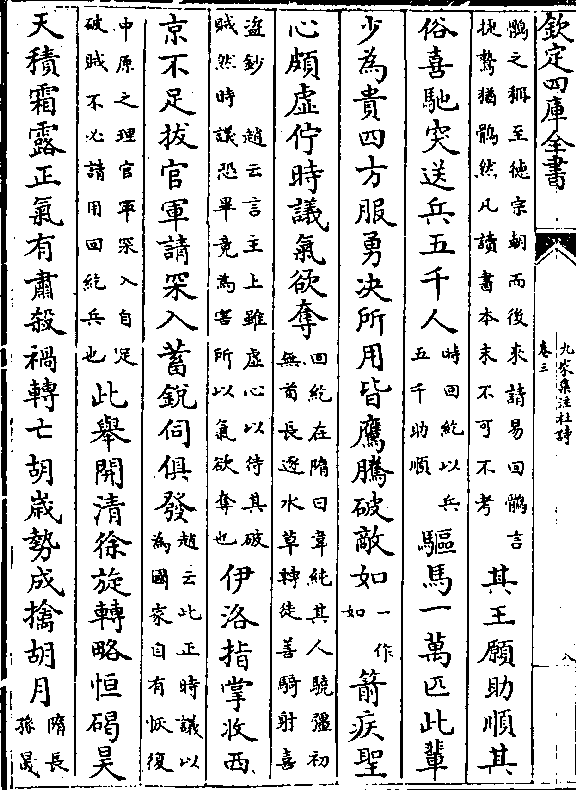 欽定四庫全書
九家集注杜詩
卷三
八
鶻之稱至徳宗朝而後來請易回鶻言
捷鷙猶鶻然凡讀書本末不可不考
其王願助順其
俗喜馳突送兵五千人
時回紇以兵
五千助順
驅馬一萬匹此輩
少為貴四方服勇決所用皆鷹騰破敵如
一作
如
箭疾聖
心頗虛佇時議氣欲奪
回紇在隋曰韋純其人驍彊初
無酋長逐水草轉徙善騎射喜
盜鈔趙云言主上雖虛心以待其破
賊然時議恐畢竟為害所以氣欲奪也
伊洛指掌收西
京不足拔官軍請深入蓄銳伺俱發
趙云此正時議以
為國家自有恢復
中原之理官軍深入自足
破賊不必請用回紇兵也
此舉開清徐旋轉略恒碣昊
天積霜露正氣有肅殺禍轉亡胡嵗勢成擒胡月
隋長
孫晟